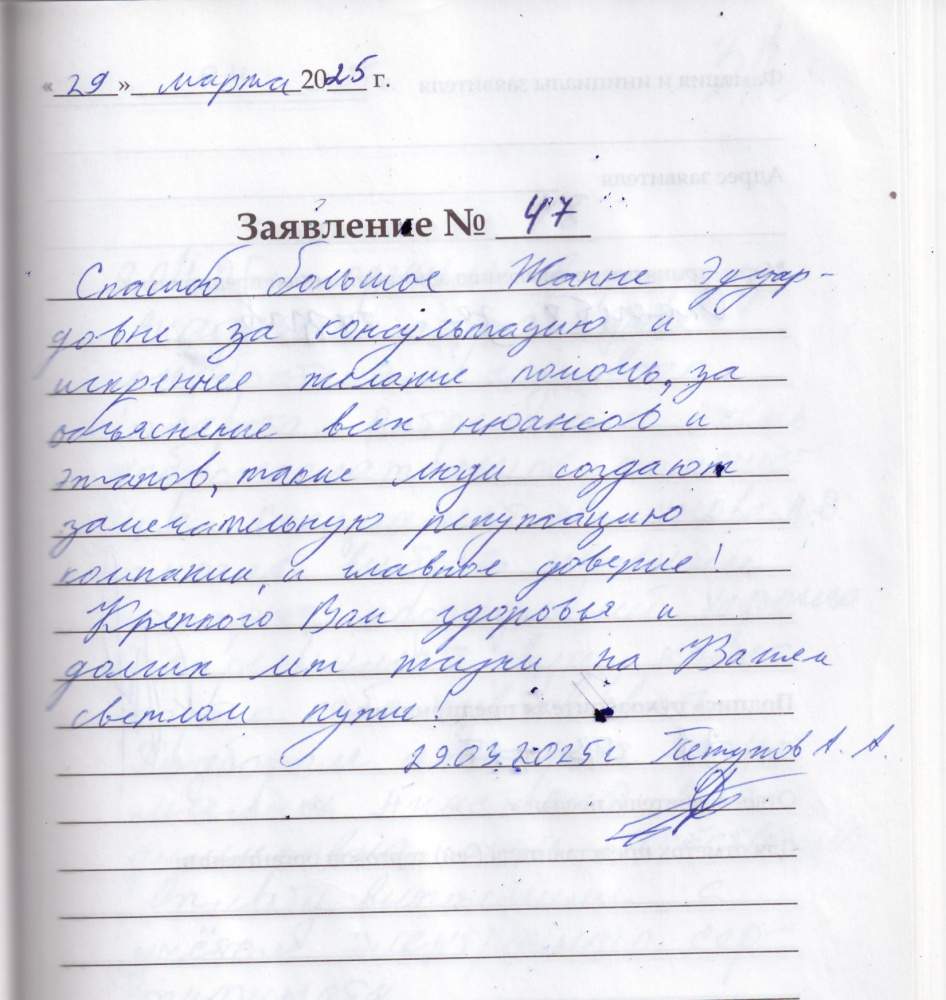 « 29 » марта 2025 г.
Заявление № 47
Спасибо большое Жанне Эдуар-
довне за консультацию и
искреннее желание помочь, за
объяснение всех нюансов и
этапов, такие люди создают
замечательную репутацию
компании, и главное доверие!
Крепкого Вам здоровья и
долгих лет жизни на Вашем
светлом пути!
29.03.2025г Петухов А. А.